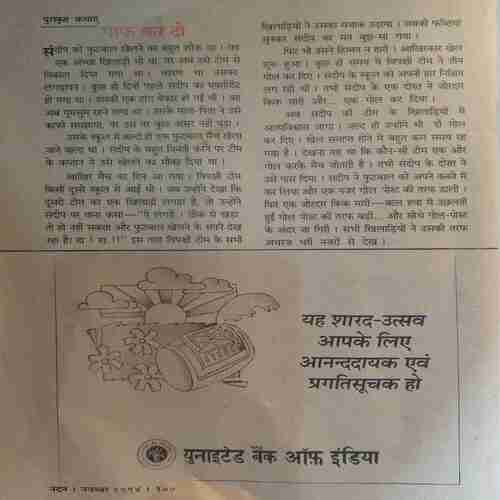 पुरस्कृत कथाएं
माफ कर दो
संदीप को फुटबाल खेलने का बहुत शौक था। वह
एक अच्छा खिलाड़ी भी था, पर अब उसे टीम से
निकाल दिया गया था। कारण था उसका
लंगड़ापन। कुछ ही दिनों पहले संदीप का एक्सीडेंट
हो गया था। उसकी एक टांग बेकार हो गई थी। वह
अब गुमसुम रहने लगा था। उसके माता-पिता ने उसे
काफी समझाया, पर उस पर कुछ असर नहीं पड़ा।
उसके स्कूल में जल्द ही एक फुटबाल मैच खेला
जाने वाला था। संदीप के बहुत विनती करने पर टीम
के कप्तान ने उसे खेलने का मौका दिया था।
आखिर मैच का दिन आ गया। विपक्षी टीम
किसी दूसरे स्कूल से आई थी। जब उन्होंने देखा कि
दूसरी टीम का एक खिलाड़ी लंगड़ा है, तो उन्होंने
संदीप पर ताना कसा—"ऐ लंगड़े! ठीक से खड़ा
तो हो नहीं सकता और फुटबाल खेलने के सपने देख
रहा है। हा! हा!!" इस तरह विपक्षी टीम के सभी
खिलाड़ियों ने उसका मजाक उड़ाया। उनकी फब्तियां
सुनकर संदीप का मन बुझ-सा गया।
फिर भी उसने हिम्मत न हारी। आखिरकार खेल
शुरू हुआ। कुछ ही समय में विपक्षी टीम ने तीन
गोल कर दिए। संदीप के स्कूल को अपनी हार निश्चित
लग रही थी। तभी संदीप के एक दोस्त ने जोरदार
किक मारी और... एक गोल कर दिया।
अब संदीप की टीम के खिलाड़ियों में
आत्मविश्वास जागा। जल्द ही उन्होंने भी दो गोल
कर दिए। खेल समाप्त होने में बहुत कम समय रह
गया है। देखना यह था कि कौन-सी टीम एक और
गोल करके मैच जीतती है। तभी संदीप के दोस्त ने
उसे पास दिया। संदीप ने फुटबाल को अपने कब्जे में
कर लिया और एक नजर गोल पोस्ट की तरफ डाली।
फिर एक जोरदार किक मारी—बाल हवा में उछलती
हुई गोल पोस्ट की तरफ बढ़ी... और सीधे गोल-पोस्ट
के अंदर जा गिरी। सभी खिलाड़ियों ने उसकी तरफ
अचरज भरी नजरों से देखा।
यह शारद-उत्सव
आपके लिए
आनन्ददायक एवं
प्रगतिसूचक हो
युनाइटेड बैंक ऑफ़ इंडिया
नंदन। नवम्बर १९९४। १००